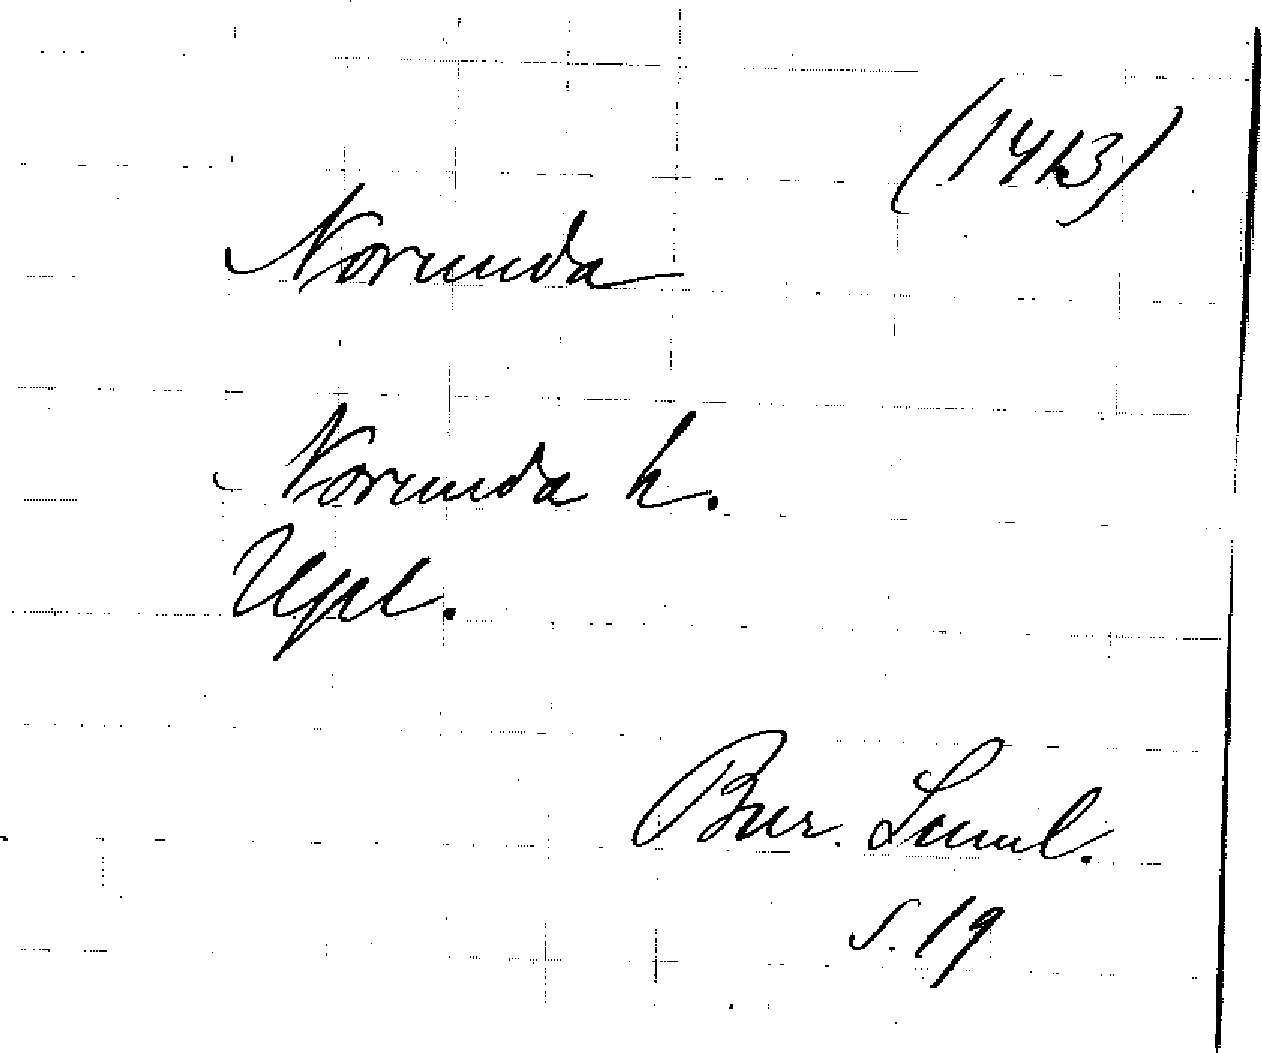 (1413)
Norunda
Norunda h.
Upl.
Bur. Suml.
s. 19